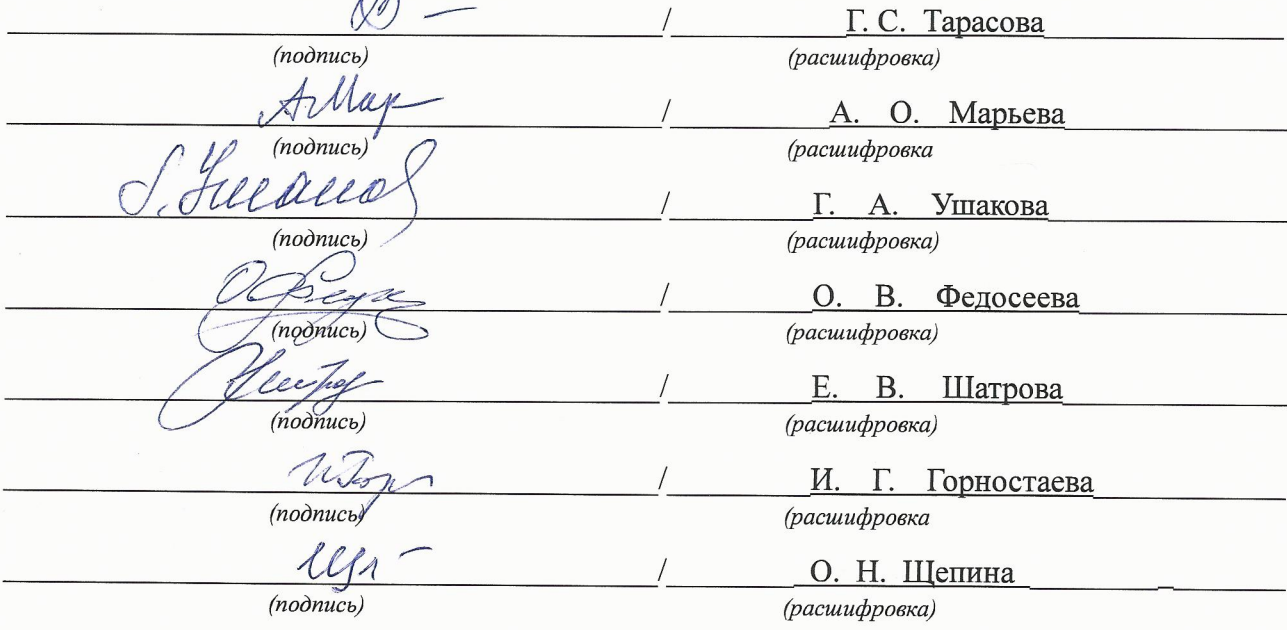 / Г. С. Тарасова
(подпись) (расшифровка)
АМар / А. О. Марьева
(подпись) (расшифровка
Г. Ушакова / Г. А. Ушакова
(подпись) (расшифровка)
/ О. В. Федосеева
(подпись) (расшифровка)
/ Е. В. Шатрова
(подпись) (расшифровка)
/ И. Г. Горностаева
(подпись) (расшифровка
/ О. Н. Щепина
(подпись) (расшифровка)